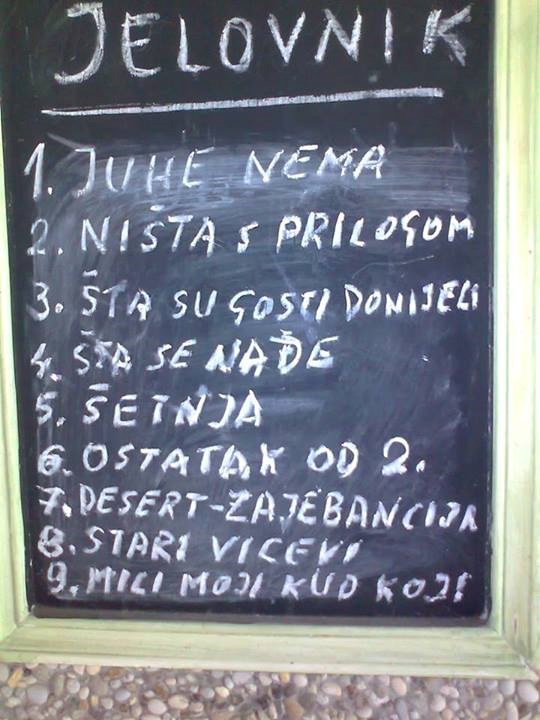 JELOVNIK
1. JUHE NEMA
2. NIŠTA S PRILOGOM
3. ŠTA SU GOSTI DONIJELI
4. ŠTA SE NAĐE
5. ŠETNJA
6. OSTATAK OD 2.
7. DESERT-ZAJEBANCIJA
8. STARI VICEVI
9. MILI MOJI KUD KOJI